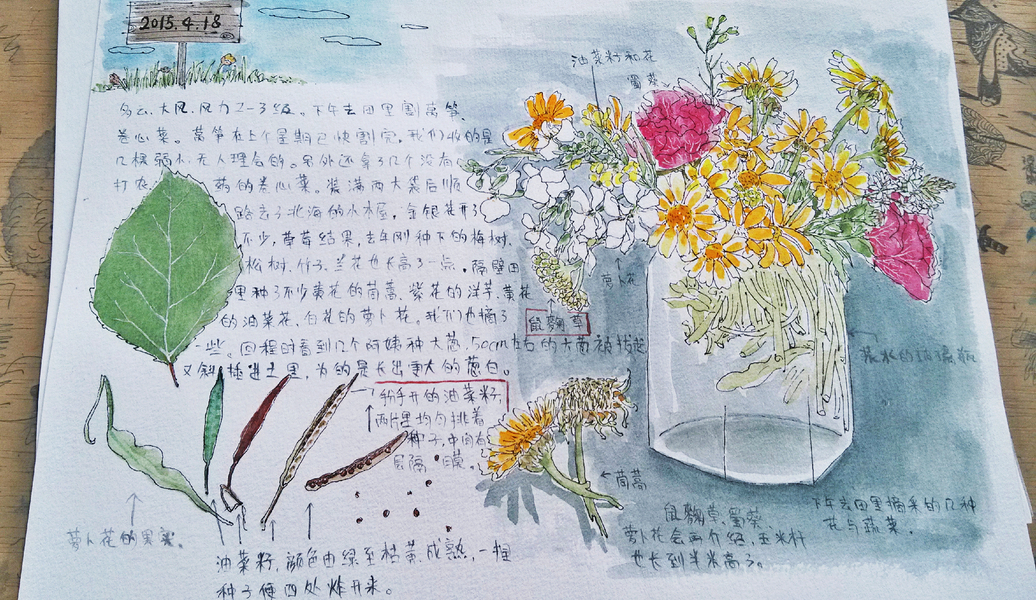 2015.4.18
多云、大风、风力2-3级。下午去田里割莴笋、
卷心菜。莴笋在上个星期已快割完,我们收的是
几棵弱小、无人理会的。另外还拿了几个没有
打农药的卷心菜。装满两大袋后顺
路去了北海的小木屋,金银花开了
不少,草莓结果,去年刚种下的梅树、
松树、竹子、兰花也长高了一点。隔壁田
里种了不少黄花的茼蒿、紫花的洋芋、黄花
的油菜花、白花的萝卜花。我们也摘了
一些。回程时看到几个阿姨种大葱,50cm左右的大葱被拔起
又斜插进土里,为的是长出更大的葱白。
油菜籽和花
蜀葵
萝卜花
鼠麴草
装水的玻璃瓶
茼蒿
剥开的油菜籽,
两片里均匀排着
种子,中间有
层隔膜。
萝卜花的果实。
油菜籽,颜色由绿至枯黄,成熟,一捏
种子便四处炸开来。
鼠麴草、蜀葵、
萝卜花会再介绍,玉米杆
也长到半米高了。
下午去田里摘来的几种
花与蔬菜。